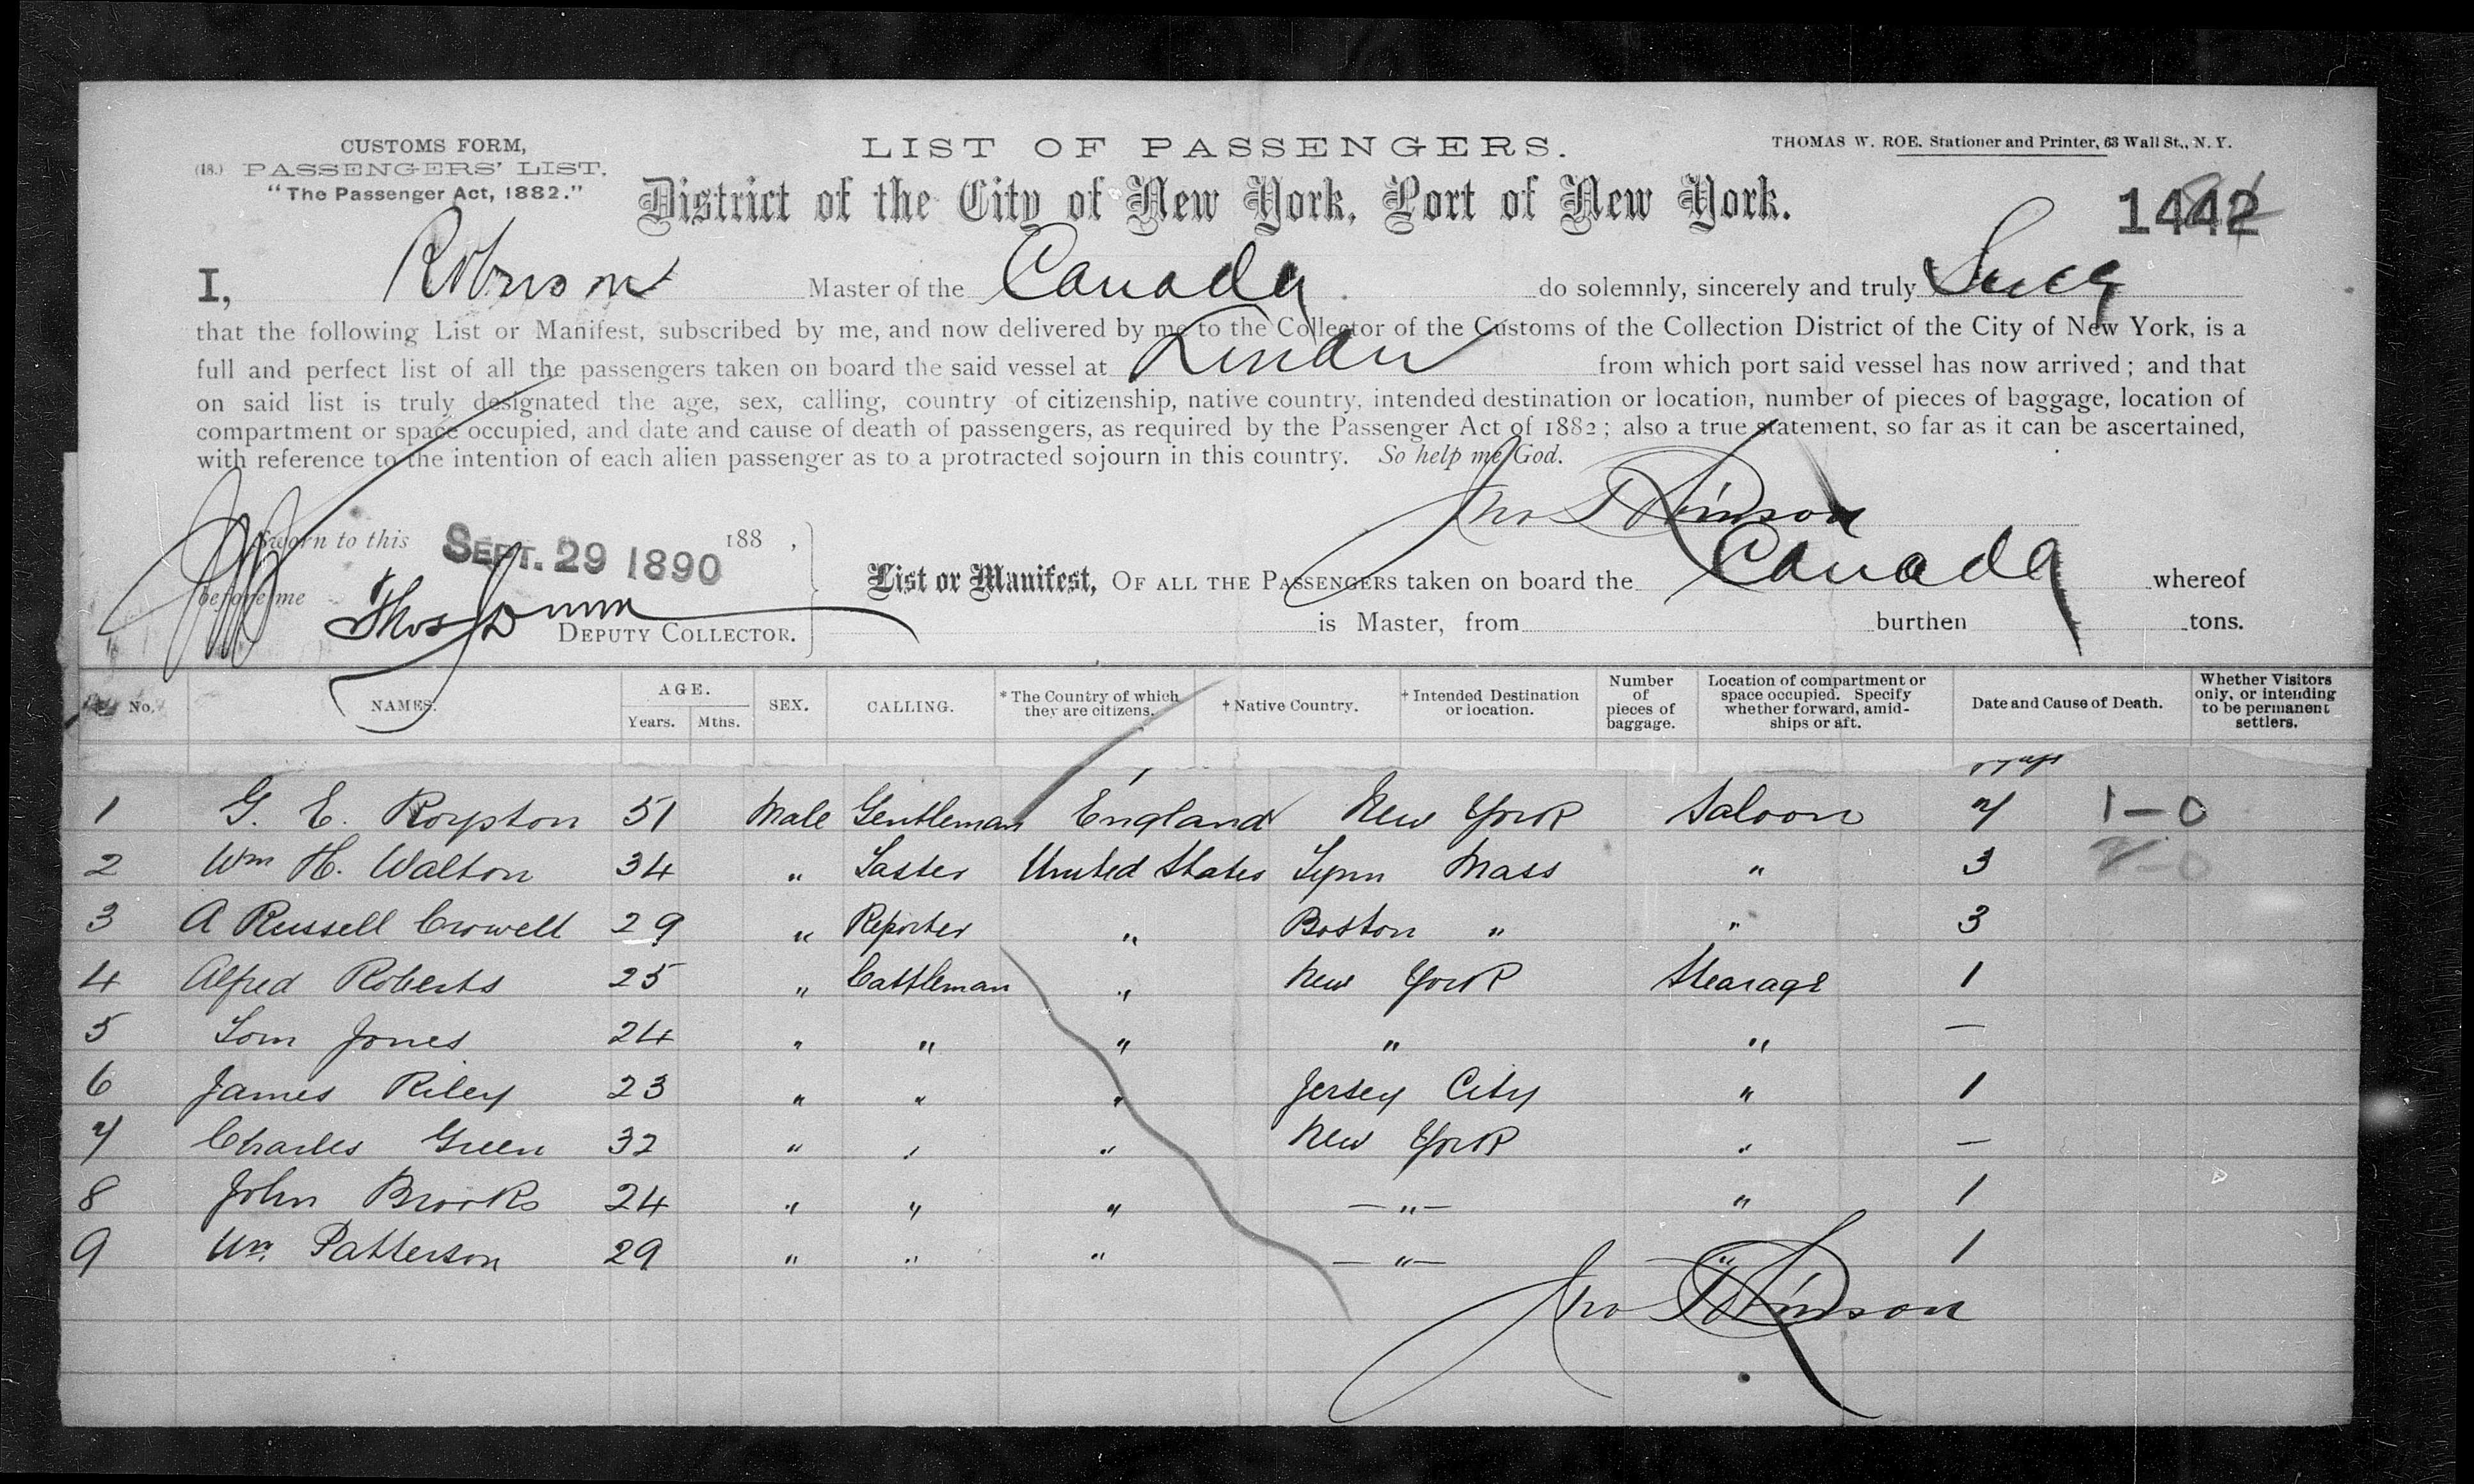 CUSTOMS FORM,
(18.) PASSENGERS' LIST.
"The Passenger Act, 1882."
LIST OF PASSENGERS.
THOMAS W. ROE. Stationer and Printer, 63 Wall St., N. Y.
District of the City of New York, Port of New York.
1442
I, Robinson Master of the Canada do solemnly, sincerely and truly
that the following List or Manifest, subscribed by me, and now delivered by me to the Collector of the Customs of the Collection District of the City of New York, is a
full and perfect list of all the passengers taken on board the said vessel at London from which port said vessel has now arrived; and that
on said list is truly designated the age, sex, calling, country of citizenship, native country, intended destination or location, number of pieces of baggage, location of
compartment or space occupied, and date and cause of death of passengers, as required by the Passenger Act of 1882; also a true statement, so far as it can be ascertained,
with reference to the intention of each alien passenger as to a protracted sojourn in this country. So help me God.
Jno Robinson
Sworn to this SEPT. 29 1890 188 ,
before me Thos Dunn DEPUTY COLLECTOR.
List or Manifest, OF ALL THE PASSENGERS taken on board the Canada whereof
is Master, from burthen tons.
No. NAMES. AGE. Years. Mths. SEX. CALLING. * The Country of which they are citizens. † Native Country. † Intended Destination or location. Number of pieces of baggage. Location of compartment or space occupied. Specify whether forward, amidships or aft. Date and Cause of Death. Whether Visitors only, or intending to be permanent settlers.
1 G. E. Roypston 51 Male Gentleman England New York Saloon 7 1-0
2 Wm H. Walton 34 " Laster United States Lynn Mass " 3
3 A Russell Crowell 29 " Reporter " Boston " " 3
4 Alfred Roberts 25 " Cattleman " New York Stearage 1
5 Tom Jones 24 " " " " " —
6 James Riley 23 " " " Jersey City " 1
7 Charles Green 32 " " " New York " —
8 John Brooks 24 " " " —"— " 1
9 Wm. Patterson 29 " " " —"— " 1
Jno Robinson